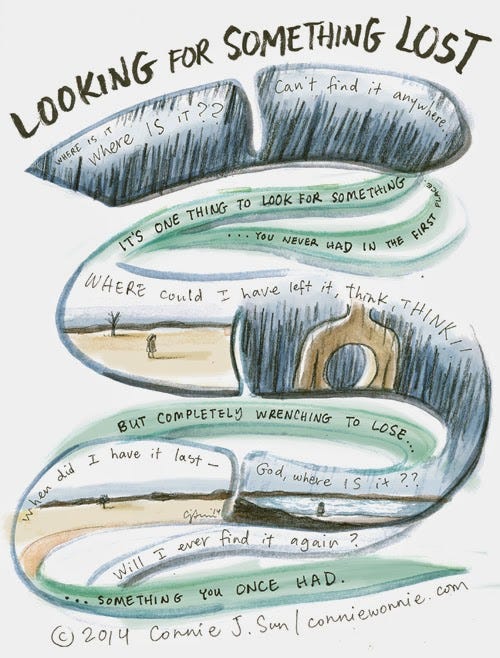 LOOKING FOR SOMETHING LOST
WHERE IS IT
Where IS IT??
Can't find it anywhere.
IT'S ONE THING TO LOOK FOR SOMETHING
...YOU NEVER HAD IN THE FIRST PLACE
WHERE could I have left it, think, THINK!!
BUT COMPLETELY WRENCHING TO LOSE...
When did I have it last—
God, where IS it??
Will I ever find it again?
...SOMETHING YOU ONCE HAD.
© 2014 Connie J. Sun / conniewonnie.com